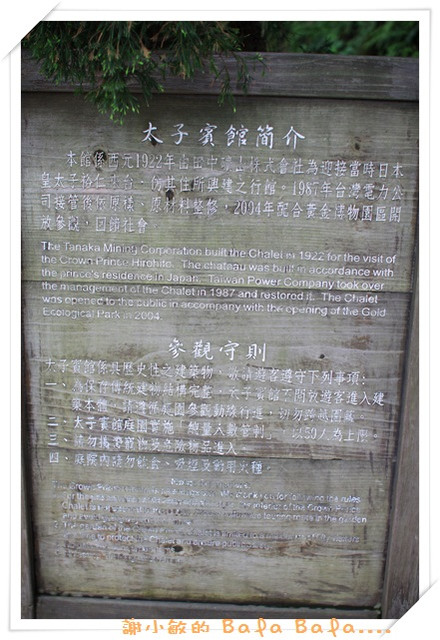 太子賓館簡介
本館係西元1922年由田中礦山株式會社為迎接當時日本
皇太子裕仁來台，仿其住所興建之行館。1987年台灣電力公
司接管後依原樣、原材料整修，2004年配合黃金博物園區開
放參觀，回饋社會
The Tanaka Mining Corporation built the Chalet in 1922 for the visit of
the Crown Prince Hirohito. The chateau was built in accordance with
the prince's residence in Japan. Taiwan Power Company took over
the management of the Chalet in 1987 and restored it. The Chalet
was opened to the public in accompany with the opening of the Gold
Ecological Park in 2004.
參觀守則
太子賓館係具歷史性之建築物，敬請遊客遵守下列事項：
一、為保存傳統建物結構完整，太子賓館不開放遊客進入建
築本體，請遵循庭園參觀動線行進，請勿跨越圍籬。
二、太子賓館庭園實施「總量人數管制」，以50人為上限。
三、請勿攜帶寵物及危險物品進入。
四、庭院內請勿飲食、吸煙及使用火種。
the rules
of the Crown Prince
in the garden
謝小敏的 Bafa Bafa....